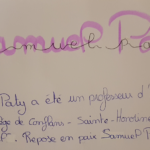 Samuel Pa
Samuel Pa
Paty a été un professeur d'
ge de Conflans - Sainte - Honorine
Repose en paix Samuel P